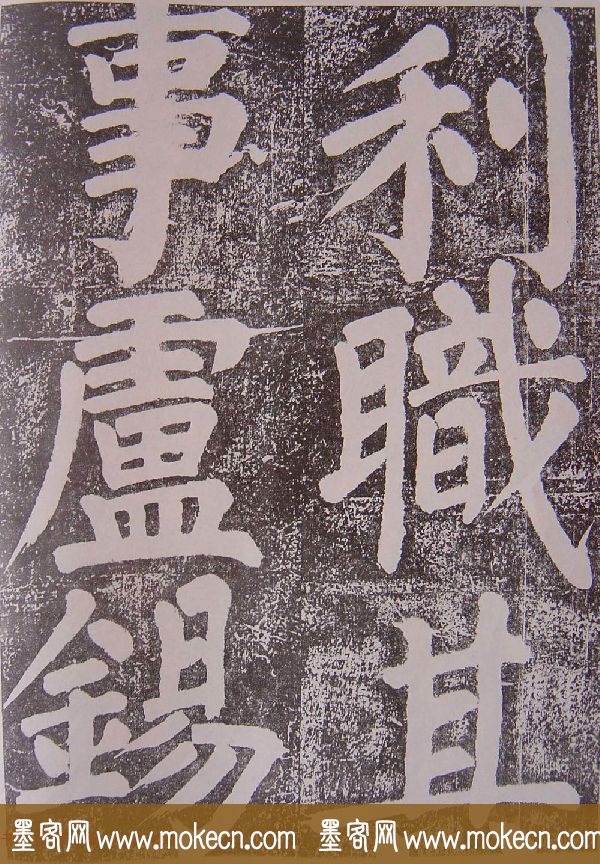 利職其
事盧錫
墨客网 www.mokecn.com 墨客网 www.mokecn.com